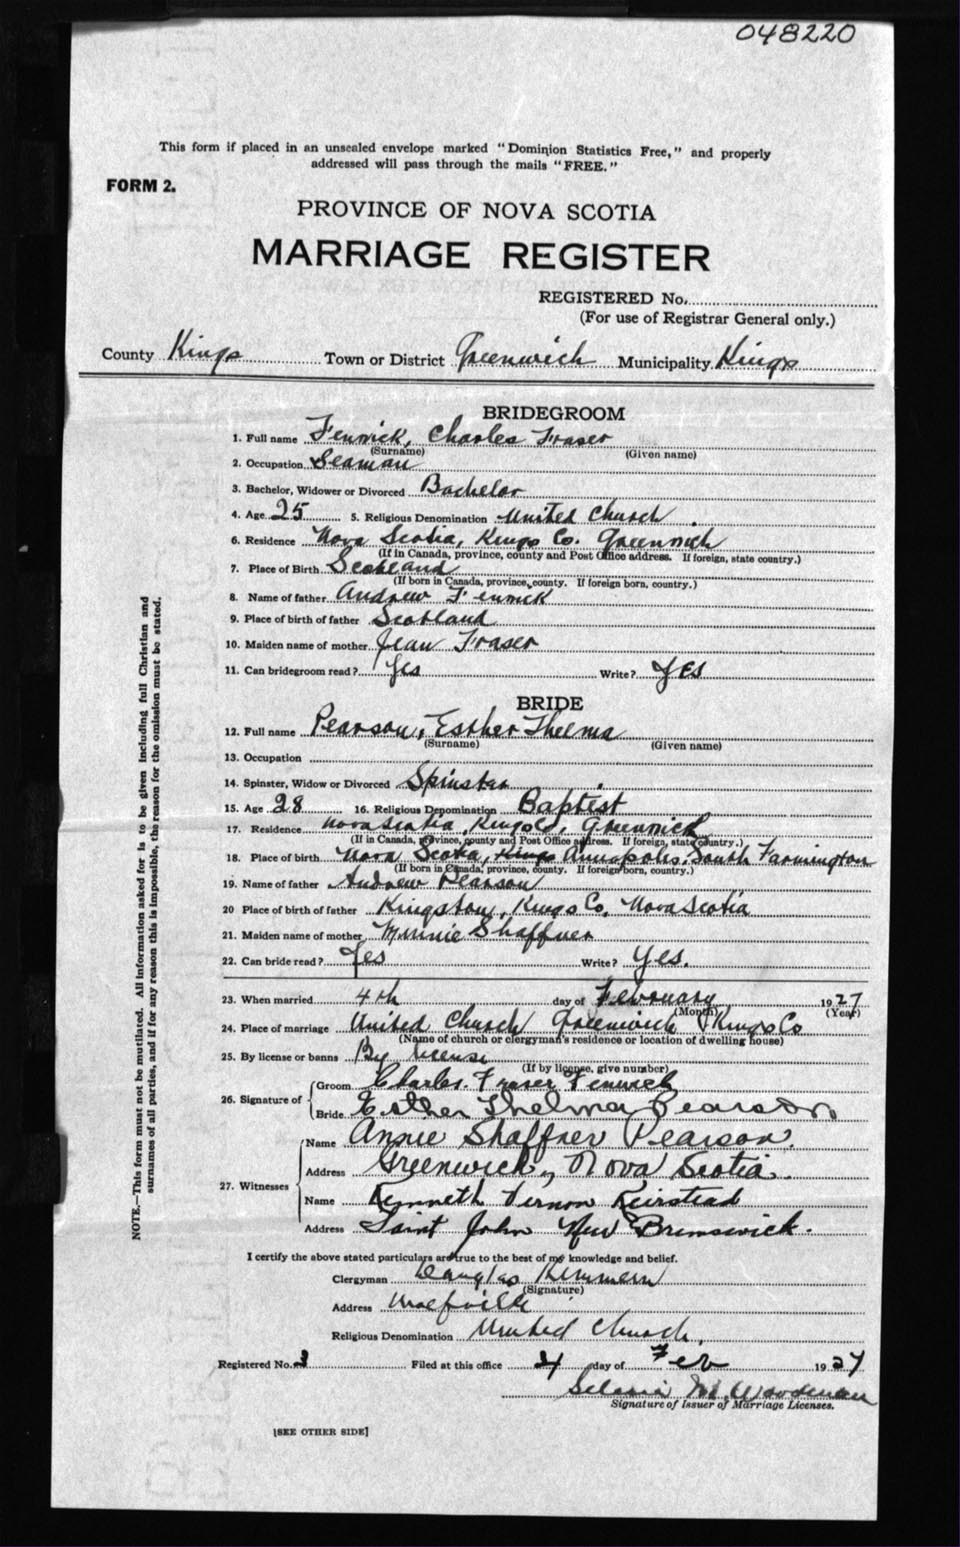 048220
This form if placed in an unsealed envelope marked "Dominion Statistics Free," and properly
addressed will pass through the mails "FREE."
FORM 2.
PROVINCE OF NOVA SCOTIA
MARRIAGE REGISTER
REGISTERED No.
(For use of Registrar General only.)
County Kings Town or District Greenwich Municipality Kings
BRIDEGROOM
1. Full name Fenwick, Charles Fraser
(Surname) (Given name)
2. Occupation Seaman
3. Bachelor, Widower or Divorced Bachelor
4. Age 25 5. Religious Denomination United Church
6. Residence Nova Scotia, Kings Co. Greenwich
(If in Canada, province, county and Post Office address. If foreign, state country.)
7. Place of Birth Scotland
(If born in Canada, province, county. If foreign born, country.)
8. Name of father Andrew Fenwick
9. Place of birth of father Scotland
10. Maiden name of mother Jean Fraser
11. Can bridegroom read? Yes Write? Yes
BRIDE
12. Full name Pearson, Esther Thelma
(Surname) (Given name)
13. Occupation
14. Spinster, Widow or Divorced Spinster
15. Age 28 16. Religious Denomination Baptist
17. Residence Nova Scotia, Kings Co, Greenwich
(If in Canada, province, county and Post Office address. If foreign, state country.)
18. Place of birth Nova Scotia, Kings Annapolis, South Farmington
(If born in Canada, province, county. If foreign born, country.)
19. Name of father Andrew Pearson
20 Place of birth of father Kingston, Kings Co, Nova Scotia
21. Maiden name of mother Minnie Shaffner
22. Can bride read? Yes Write? Yes.
23. When married 4th day of February 1927
(Month) (Year)
24. Place of marriage United Church Greenwich Kings Co
(Name of church or clergyman's residence or location of dwelling house)
25. By license or banns By license
(If by license, give number)
26. Signature of { Groom Charles Fraser Fenwick
Bride Esther Thelma Pearson
27. Witnesses { Name Annie Shaffner Pearson.
Address Greenwich, Nova Scotia.
Name Kenneth Vernon Keirstead
Address Saint John New Brunswick.
I certify the above stated particulars are true to the best of my knowledge and belief.
Clergyman Douglas
(Signature)
Address Wolfville
Religious Denomination United Church.
Registered No. 3 Filed at this office 4 day of Feb 1927
M. Woodman
Signature of Issuer of Marriage Licenses.
[SEE OTHER SIDE]
NOTE.—This form must not be mutilated. All information asked for is to be given including full Christian and
surnames of all parties, and if for any reason this is impossible, the reason for the omission must be stated.